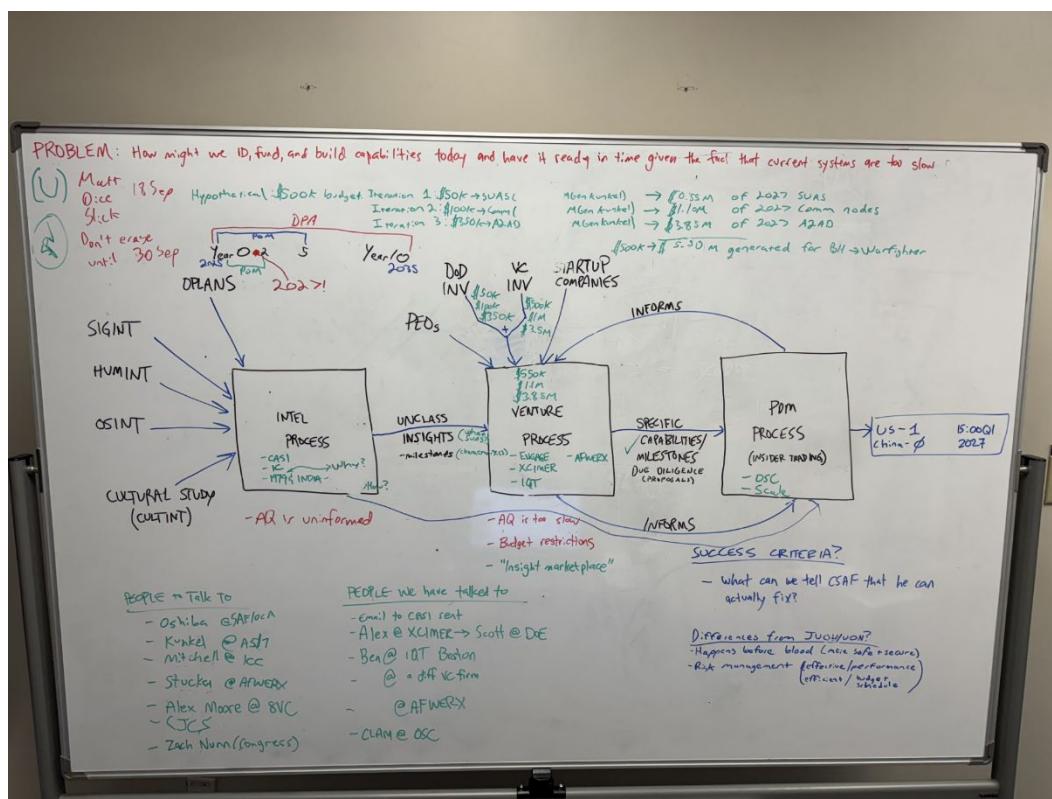 PROBLEM: How might we ID, fund, and build capabilities today and have it ready in time given the fact that current systems are too slow
(U)
Matt 18 Sep
Dice
Slick
Don't erase
until 30 Sep
Hypothetical: $500k budget
Iteration 1: $50k → SUAS(
Iteration 2: $100k → Comm(
Iteration 3: $350k → A2AD
MGen Kunkel) → $0.55M of 2027 SUAS
MGen Kunkel) → $1.10M of 2027 Comm nodes
MGen Kunkel) → $3.85M of 2027 A2AD
$500k → $5.50M generated for BH → Warfighter
DPA
POM
Year 0 2 5 Year 10
2025 2035
POM
2027!
OPLANS
SIGINT
HUMINT
OSINT
CULTURAL STUDY
(CULTINT)
INTEL
PROCESS
- CASI
- IC Why?
INDIA
How?
- AQ is uninformed
UNCLASS
INSIGHTS
- milestones
PEOs
DoD
INV
$50k
$100k
$350k
+
VC
INV
$500k
$1M
$3.5M
STARTUP
COMPANIES
$550k
$1.1M
$3.85M
VENTURE
PROCESS
- ENGAGE - AFWERX
- XCIMER
- IQT
- AQ is too slow
- Budget restrictions
- "Insight marketplace"
SPECIFIC
✓ CAPABILITIES/
MILESTONES
DUE DILIGENCE
(PROPOSALS)
INFORMS
INFORMS
POM
PROCESS
(INSIDER TRADING)
- OSC
- Scale
US-1 15:00 Q1
China-0 2027
SUCCESS CRITERIA?
- What can we tell CSAF that he can
actually fix?
Differences from JUON/UON?
- Happens before blood (more safe + secure)
- Risk management (effective/performance
efficient/budget
schedule)
PEOPLE to Talk To
- Oshiba @
- Kunkel @ A5/7
- Mitchell @ ICC
- Stucka @ AFWERX
- Alex Moore @ 8VC
- CJCS
- Zach Nunn (Congress)
PEOPLE we have talked to
- Email to CASI sent
- Alex @ XCIMER → Scott @ DoE
- Ben @ IQT Boston
- @ a diff VC firm
- @ AFWERX
- CLAM @ OSC